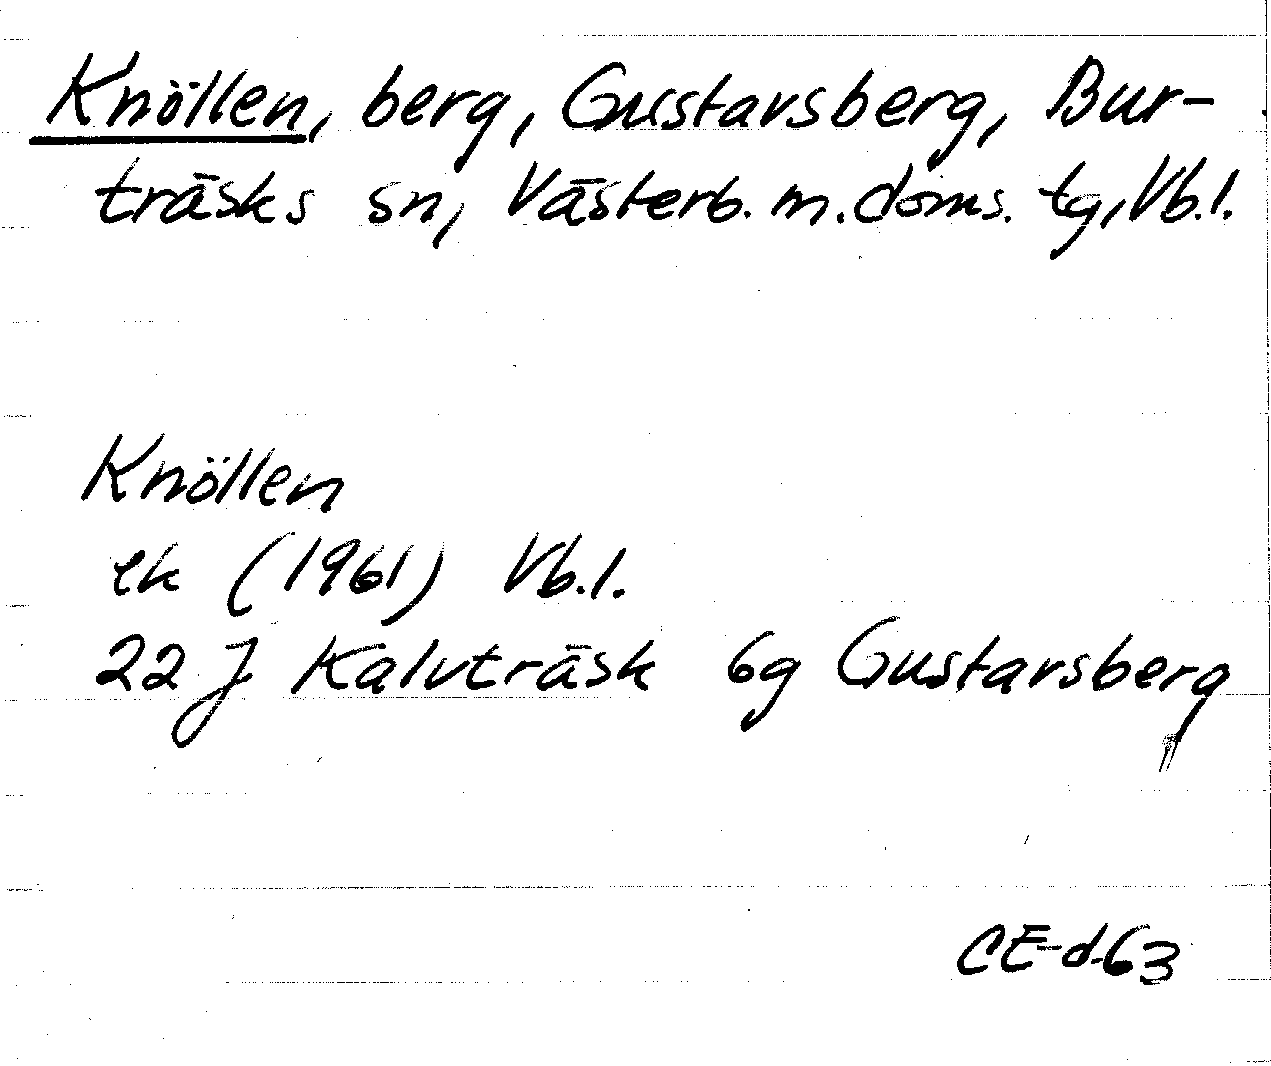 Knöllen, berg, Gustavsberg, Bur-
träsks sn, Västerb. m. doms. tg, Vb.l.
Knöllen
ek (1961) Vb.l.
22 J Kalvträsk 6g Gustavsberg
CE-d-63